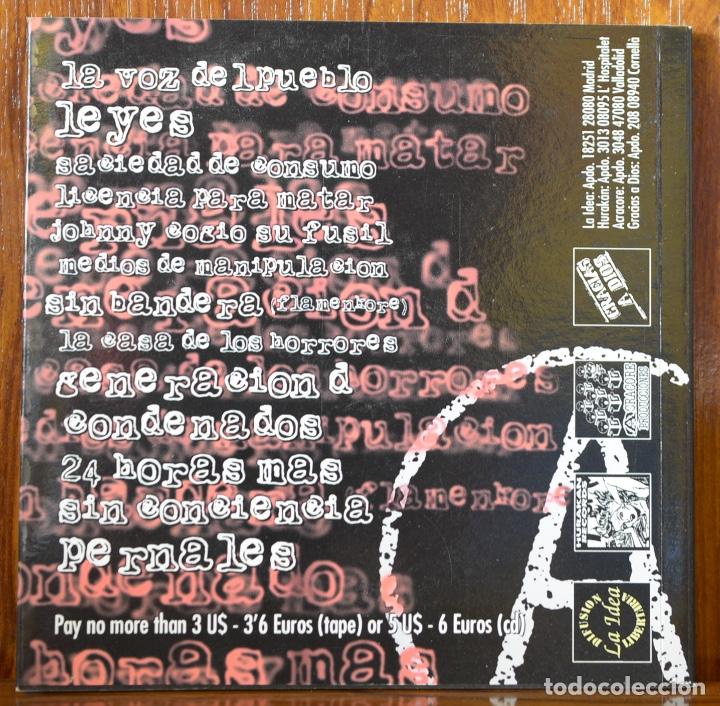 la voz del pueblo
leyes
saciedad de consumo
licencia para matar
johnny cogio su fusil
medios de manipulacion
sin bandera (flamenkore)
la casa de los horrores
generacion d
condenados
24 horas mas
sin conciencia
pernales
Pay no more than 3 U$ - 3'6 Euros (tape) or 5 U$ - 6 Euros (cd)
La Idea: Apdo. 18251 28080 Madrid
Hurakán: Apdo. 3013 08095 L' Hospitalet
Acracore: Apdo. 3048 47080 Valladolid
Gracias a Dios: Apdo. 208 08940 Cornellà
GRACIAS
A DIOS
ACRACORE
PRODUCCIONES
HURAKAN
RECORDS
DIFUSION
La Idea
todocoleccion